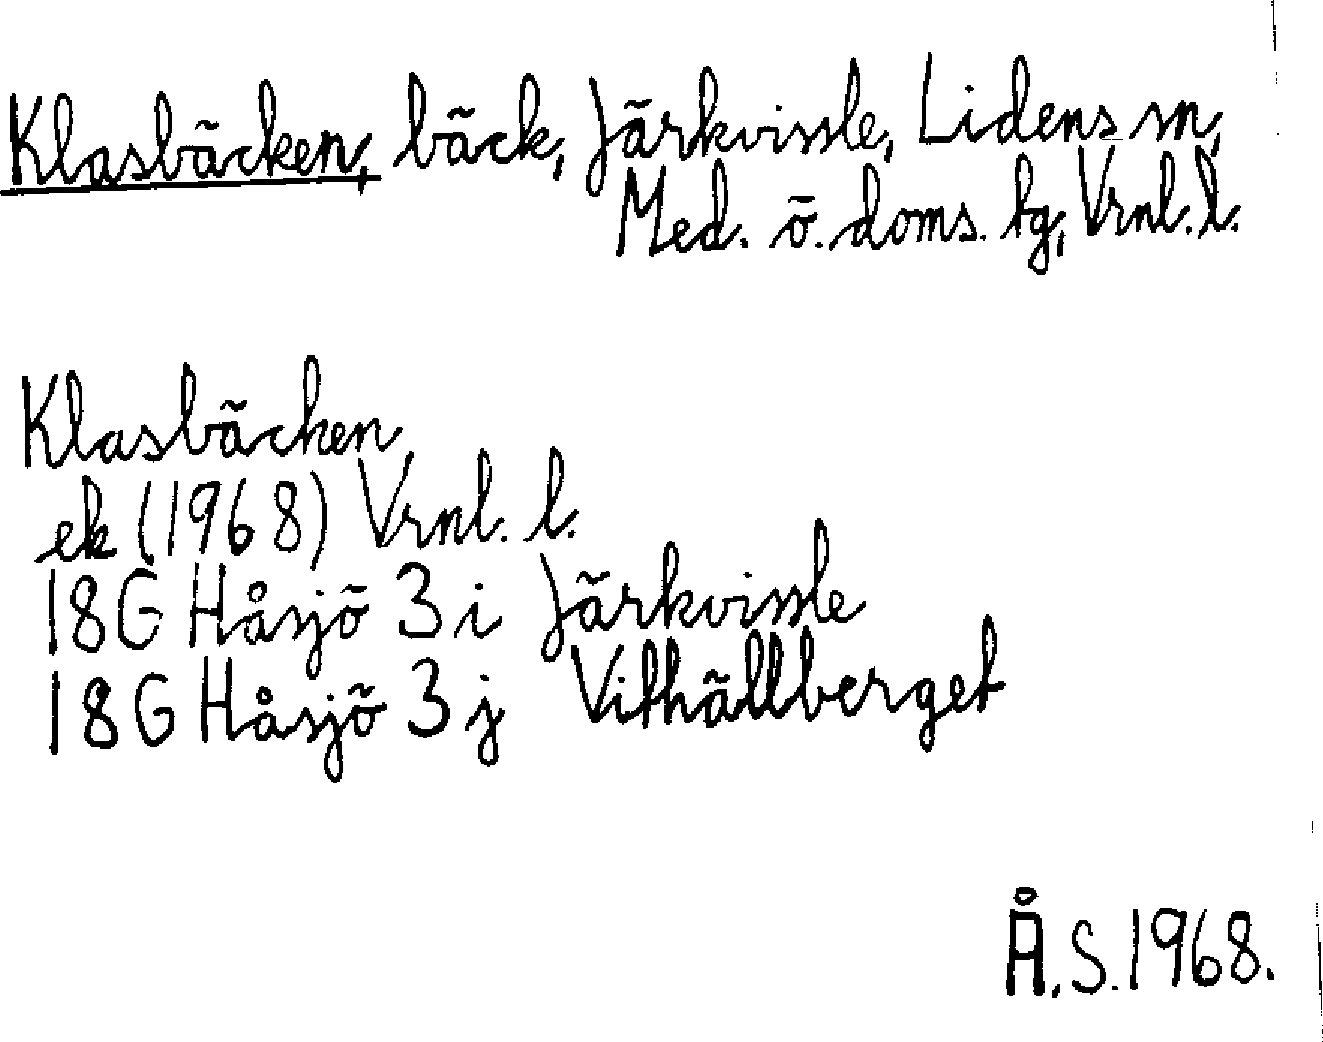 Klasbäcken, bäck, Järkvissle, Lidens sn,
Med. ö. doms. tg, Vrnl. l.
Klasbäcken
ek (1968) Vrnl. l.
18G Håsjö 3 i Järkvissle
18G Håsjö 3 j Vithällberget
Å. S. 1968.